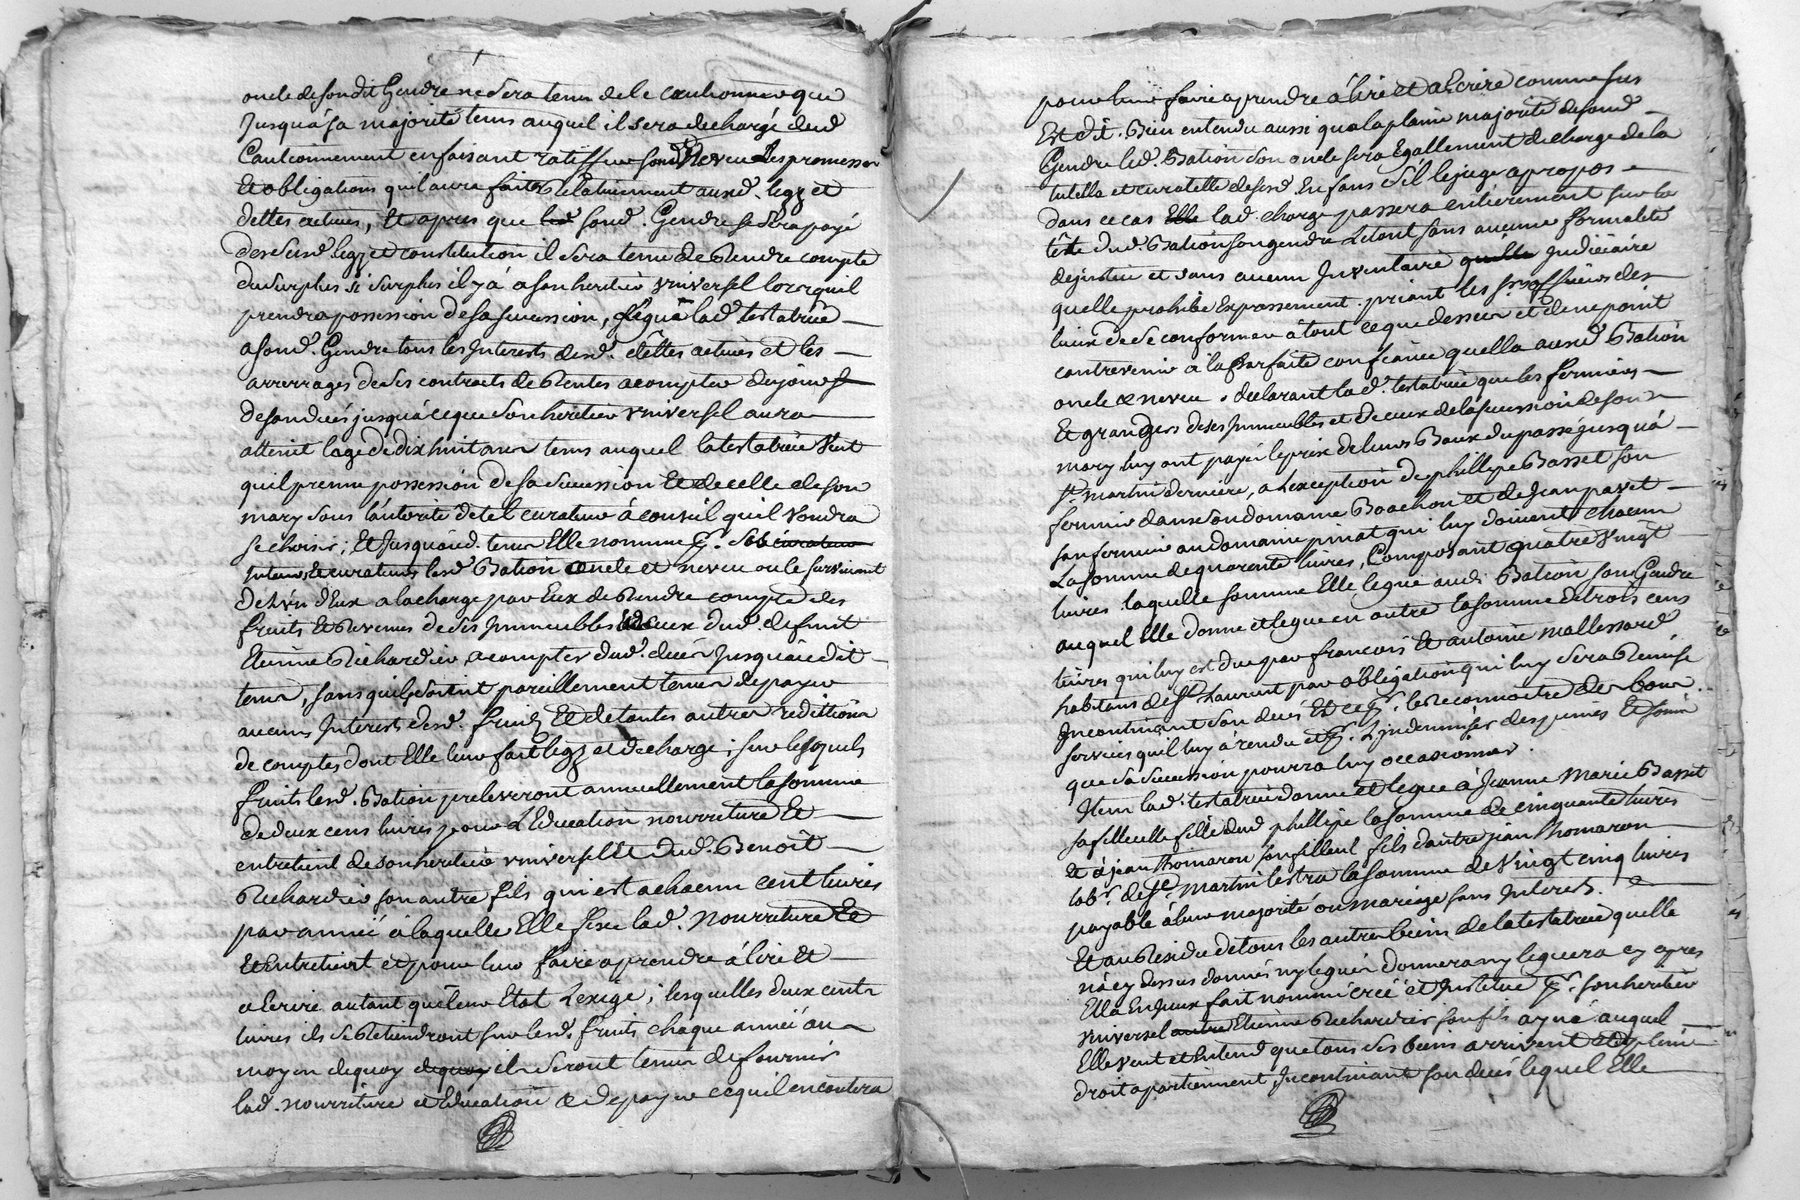 oncle de sond.t Gendre ne sera tenu de le cautionner que
Jusqu'à sa majorité tems auquel il sera dechargé dud.
Cautionnement en faisant ratiffier sond. Neveu les promesses
Et obligations qu'il aura faittes Relativement auxd. legz et
dettes actives, Et apres que sond. Gendre se sera payé
desd. legz et constitution il sera tenu de Rendre compte
du surplus si surplus il y à a son heritier universel lorsquil
prendra possession de sa succession, legue lad. testatrice
a sond. Gendre tous les Interests desd. dettes actives et les
arrerrages de ses contracts de Rentes a compter du jour
de son decés jusqu'à ce que son heritier universel aura
atteint l'age de dix huit ans tems auquel la testatrice Veut
quil prenne possession de sa succession Et de celle de son
mary sous l'autorité de tel curateur à conseil qu'il voudra
se choisir; Et Jusqu'aud. tems Elle nomme p.r
tuteurs Et curateurs lesd. Bation oncle et neveu ou le survivant
de L'un d'Eux a la charge par Eux de Rendre compte des
fruits Et Revenus de ses Immeubles de ceux dud. defunt
Etienne Richardier, a compter dud. decés Jusqu'audit
tems, sans quils soient pareillement tenus de payer
aucuns Interests desd. fruits Et de toutes autres redittions
de comptes dont Elle leur fait legz et decharge; sur lesquels
fruits lesd. Bation preleveront annuellement la somme
de deux cens livres pour L'Education nourriture Et
entretient de son heritier universel Et dud. Benoît
Richardier son autre fils qui est a chacun cent livres
par année à laquelle Elle fixe lad. Nourriture Et
Entretient et pour leur faire aprendre à lire Et
a Ecrire autant que leur Etat L'exige; lesquelles deux cents
livres ils se Retiendront sur lesd. fruits chaque année au
moyen dequoy dequoy ils seront tenus de fournir
lad. nourriture et Education & de payer ce quil en coutera
pour leur faire aprendre à lire et a Ecrire comme sus
Est dit. Bien entendu aussi qu'a la pleine majorité de sond.
Gendre led. Bation son oncle sera Egallement decharge de la
tutelle et curatelle desd. Enfans s'il le juge a propos
dans ce cas Elle lad. charge passera entierement sur la
tête dud. Bation son gendre Le tout sans aucune formalité
de justice et sans aucun Inventaire quelle Judiciaire
quelle prohibe Expressement. priant les s.rs officiers des
lieux de se conformer à tout ce que dessus et de ne point
contrevenir à la parfaite confiance quella auxd. Bation
oncle & neveu. declarant lad. testatrice que les fermiers
Et grangers de ses Immeubles et de ceux de la succession de son
mary luy ont payé le prix de leurs Baux du passé jusqu'à
S.t martin derniere, a L'exception de phillipe Basset son
fermier dans son domaine Boachon et de Jean pavet
son fermier au domaine pinat qui luy doivent chacun
La somme de quarente livres, Composant quatre vingt
livres laquelle somme Elle legue aud. Bation son Gendre
auquel Elle donne et legue en autre la somme de trois cens
livres qui luy est due par francois Et antoine mallessard
habitans de S.t Laurent par obligation qui luy sera Remise
Incontinant son decés Et ce p.r le Reconnoitre des bons
services quil luy à rendu et p.r L'indemniser des peines Et soins
que sa succession pourra luy occasionner.
Item lad. testatrice donne et legue à Jeanne Marie Basset
sa filleulle fille dud. phillipe la somme de cinquante livres
et à jean thomaron son filleul fils d'autre jean thomaron
lab.r de S.t Martin lestra la somme de vingt cinq livres
payable à leur majorité ou mariage sans Interets.
Et au Residu de tous les autres biens de la testatrice quelle
n'à cy dessus donnés ny legués donnera ny leguera cy apres
Ella En Iceux fait nommé créé et Institue p.r son heritier
universel autre Etienne Richardier son fils ayné auquel
Elle veut et Entend que tous ses biens arrivent et de plein
droit apartiennent, Incontinant son decés lequel Elle